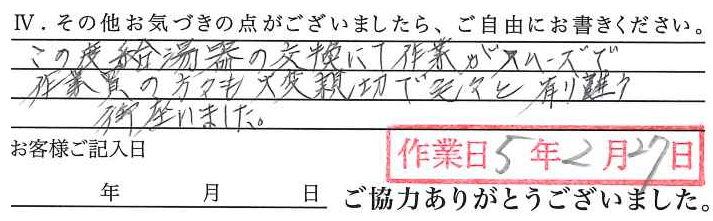 Ⅳ．その他お気づきの点がございましたら、ご自由にお書きください。
この度給湯器の交換にて作業がスムーズで
作業員の方々も大変親切で 有り難う
御座いました。
お客様ご記入日
作業日 5 年 2 月 27 日
年 月 日 ご協力ありがとうございました。